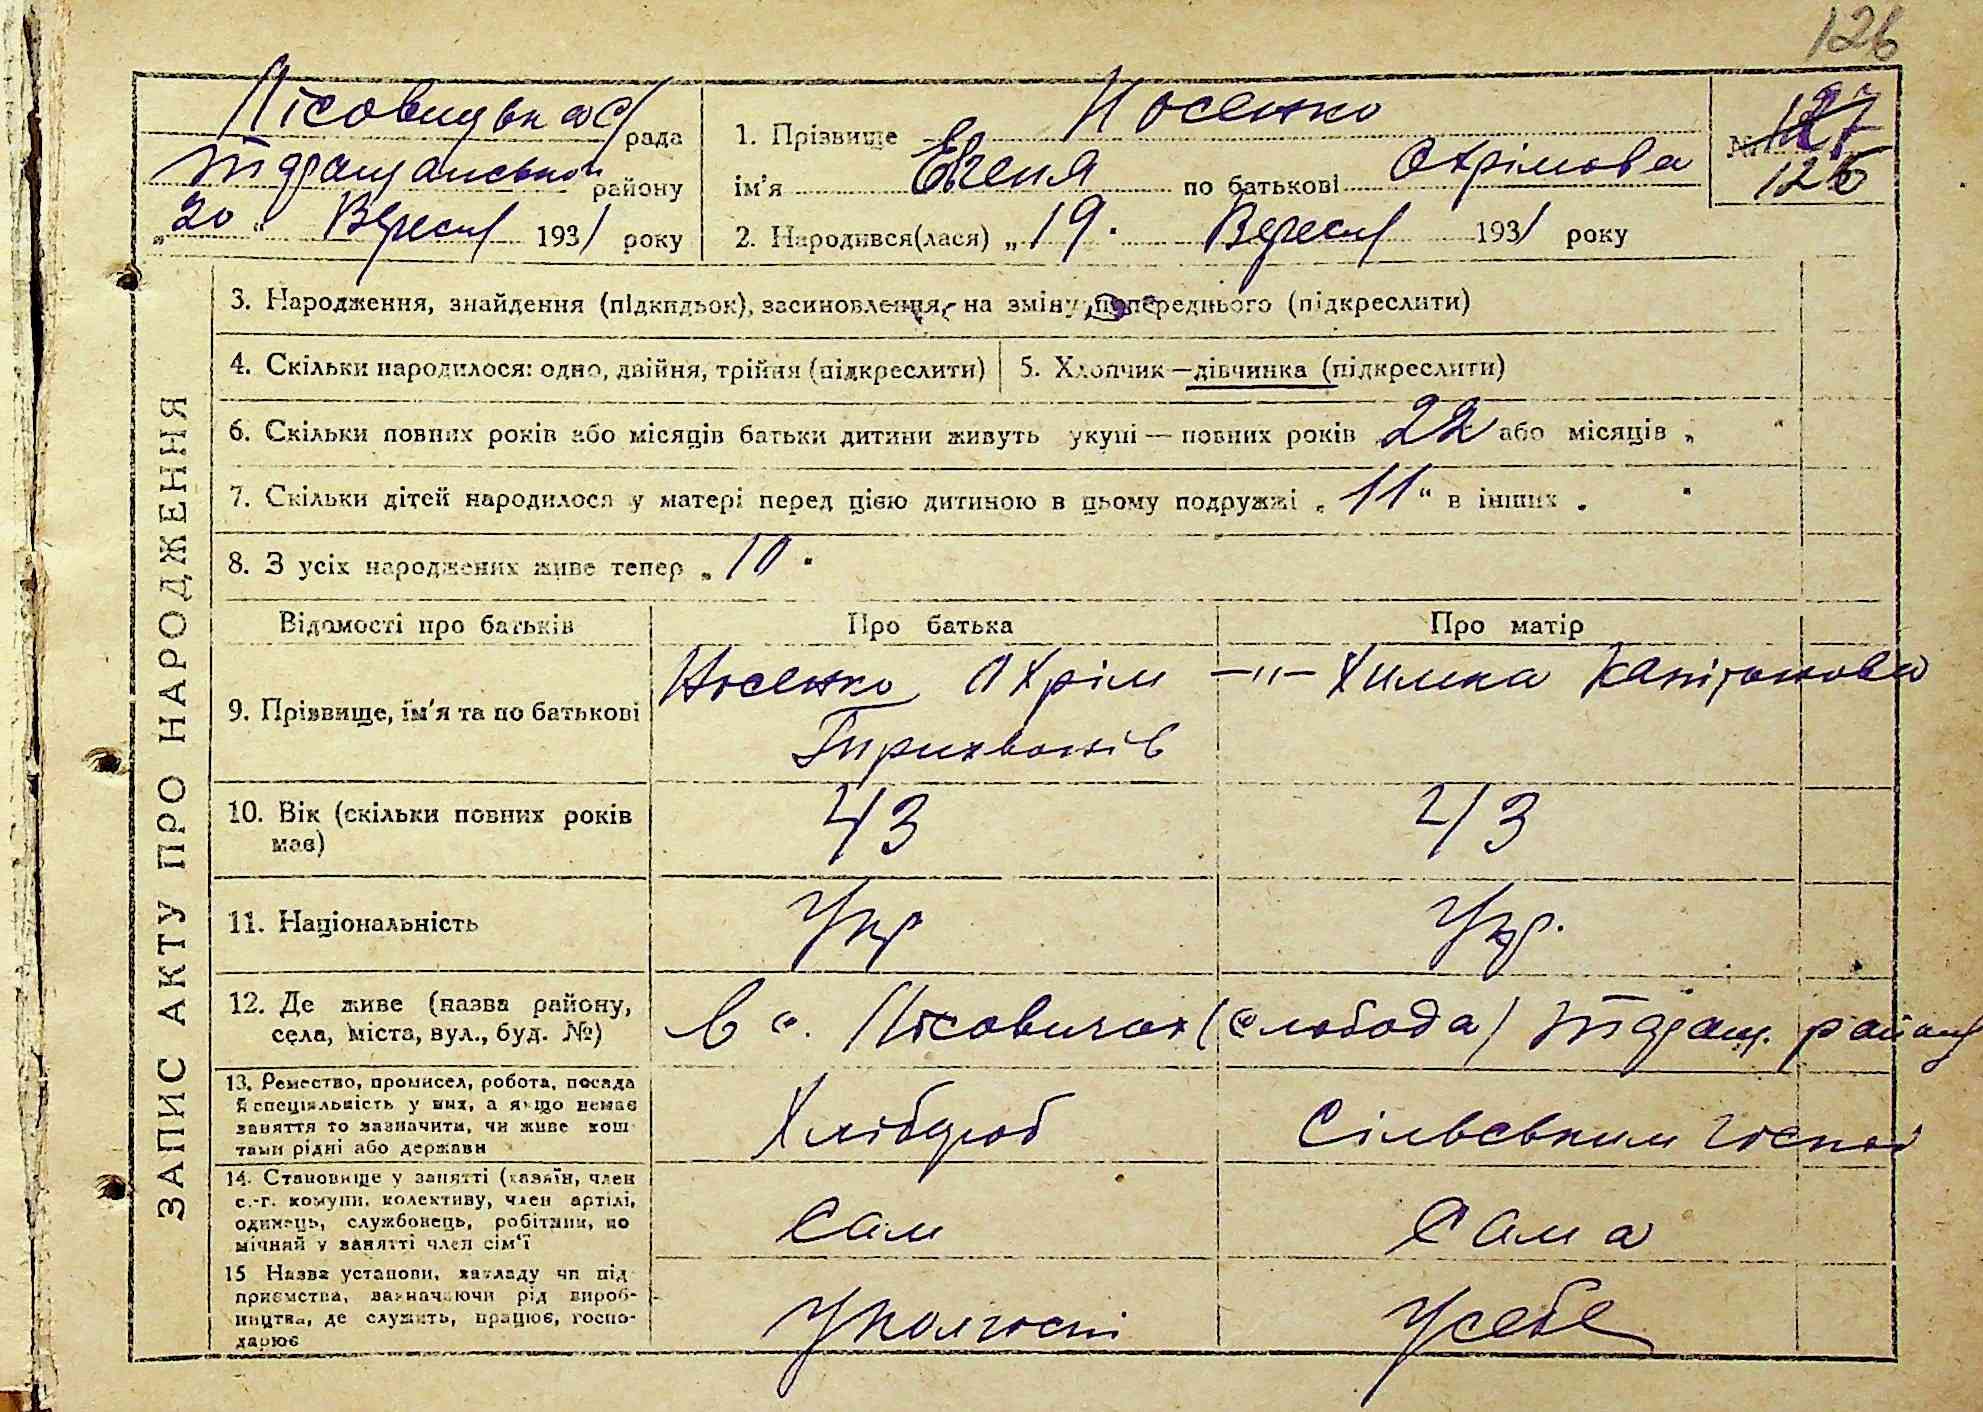 126
Пісовицька с/рада
Таращанського району
„20“ Вересня 1931 року
1. Прізвище Носенко
ім'я Евгенія по батькові Охрімова
№ 127
126
2. Народився(лася) „19. Вересня 1931 року
ЗАПИС АКТУ ПРО НАРОДЖЕННЯ
3. Народження, знайдення (підкидьок), засиновлення, на зміну попереднього (підкреслити)
4. Скільки народилося: одно, двійня, трійня (підкреслити)
5. Хлопчик—дівчинка (підкреслити)
6. Скільки повних років або місяців батьки дитини живуть укупі — повних років 22 або місяців „ “
7. Скільки дітей народилося у матері перед цією дитиною в цьому подружжі „11“ в інших „ “
8. З усіх народжених живе тепер „10“
Відомості про батьків Про батька Про матір
9. Прізвище, ім'я та по батькові Носенко Охрім —"— Химка Капітонова
Трихвонів
10. Вік (скільки повних років має) 43 43
11. Національність Укр Укр.
12. Де живе (назва району,
села, міста, вул., буд. №) в с. Пісовичах (слобода) Таращ. району
13. Ремество, промисел, робота, посада
й спеціяльність у них, а якщо немає
заняття то зазначити, чи живе кош-
тами рідні або держави Хлібороб Сільським госпо
14. Становище у занятті (хазяїн, член
с.-г. комуни, колективу, член артілі,
одинець, службовець, робітник, по
мічний у занятті член сім'ї Сам Сама
15 Назва установи, закладу чи під
приємства, зазначаючи рід вироб-
ництва, де служить, працює, госпо-
дарює У колгоспі У себе